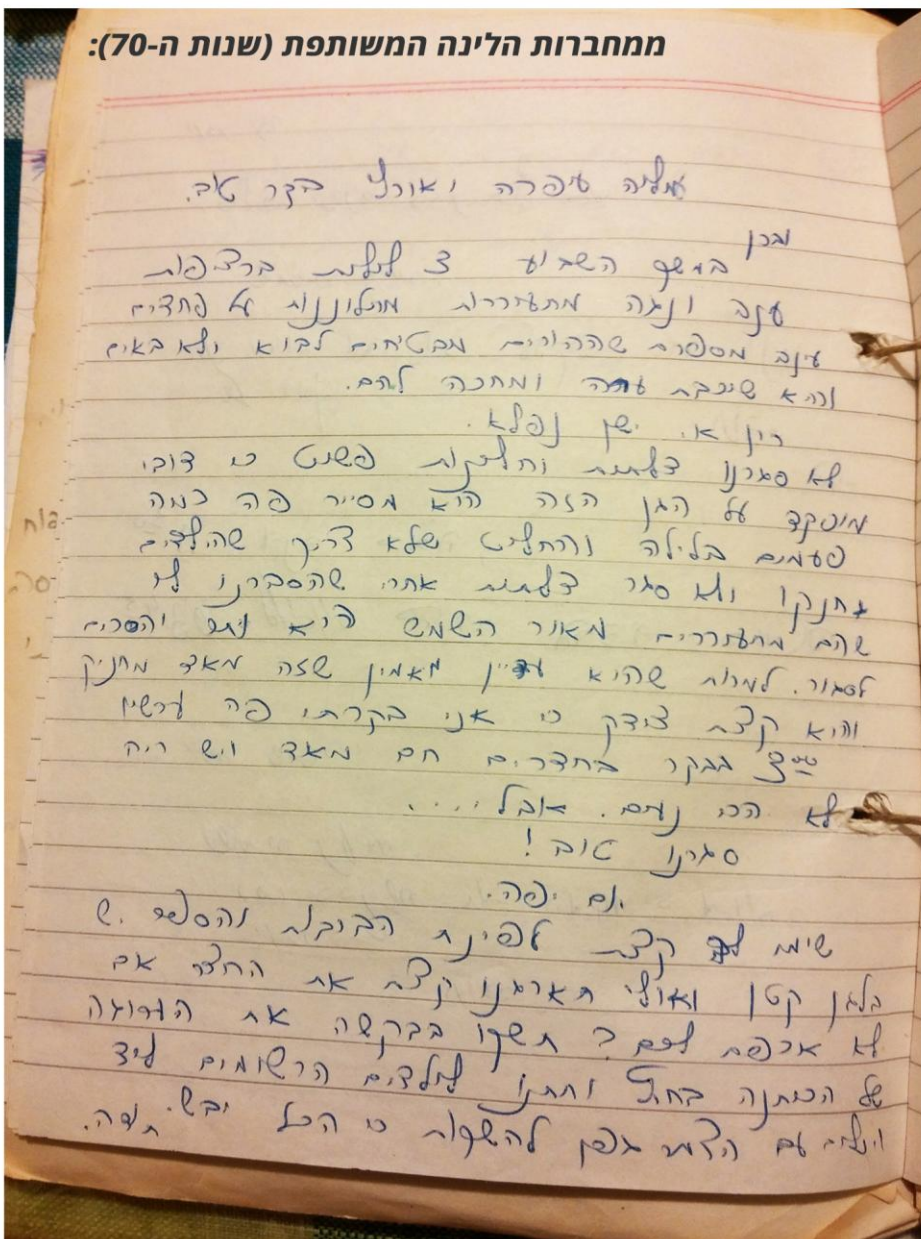 ממחברות הלינה המשותפת (שנות ה-70):
עמליה עיפרה ואורלי בקר טוב.
וברן
במשך השבוע 3 לילות ברציפות
ענב ונגה מתעוררות מתלוננות על פחדים
ענב מספרת שההורים מבטיחים לבוא ולא באים
והיא שוכבת ערה ומחכה להם.
רין א. ישן נפלא.
לא סגרנו דלתות וחלונות פשוט כי דובי
מופקד על הגן הזה הוא מסייר פה כמה
פעמים בלילה והחליט שלא צריך שהילדים
יחנקו ולא סגר דלתות אחרי שהסברנו לו
שהם מתעוררים מאור השמש הוא ניתר והסכים
לסגור. למרות שהוא עדיין מאמין שזה מאד מחניק
והוא קצת צודק כי אני בקרתי פה עכשיו
בבקר בחדרים חם מאד ויש ריח
לא הכי נעים. אבל ....
סגרנו טוב!
יום יפה.
שימו לב קצת לפינת הבובות והספר. יש
בלגן קטן ואולי תארגנו קצת את החצר אם
לא אכפת לכם? תשקו בבקשה את הערוגה
של הכיתה בחוץ ותתנו לילדים הרשומים ליד
הגן להשקות כי הכל יבש. תודה.